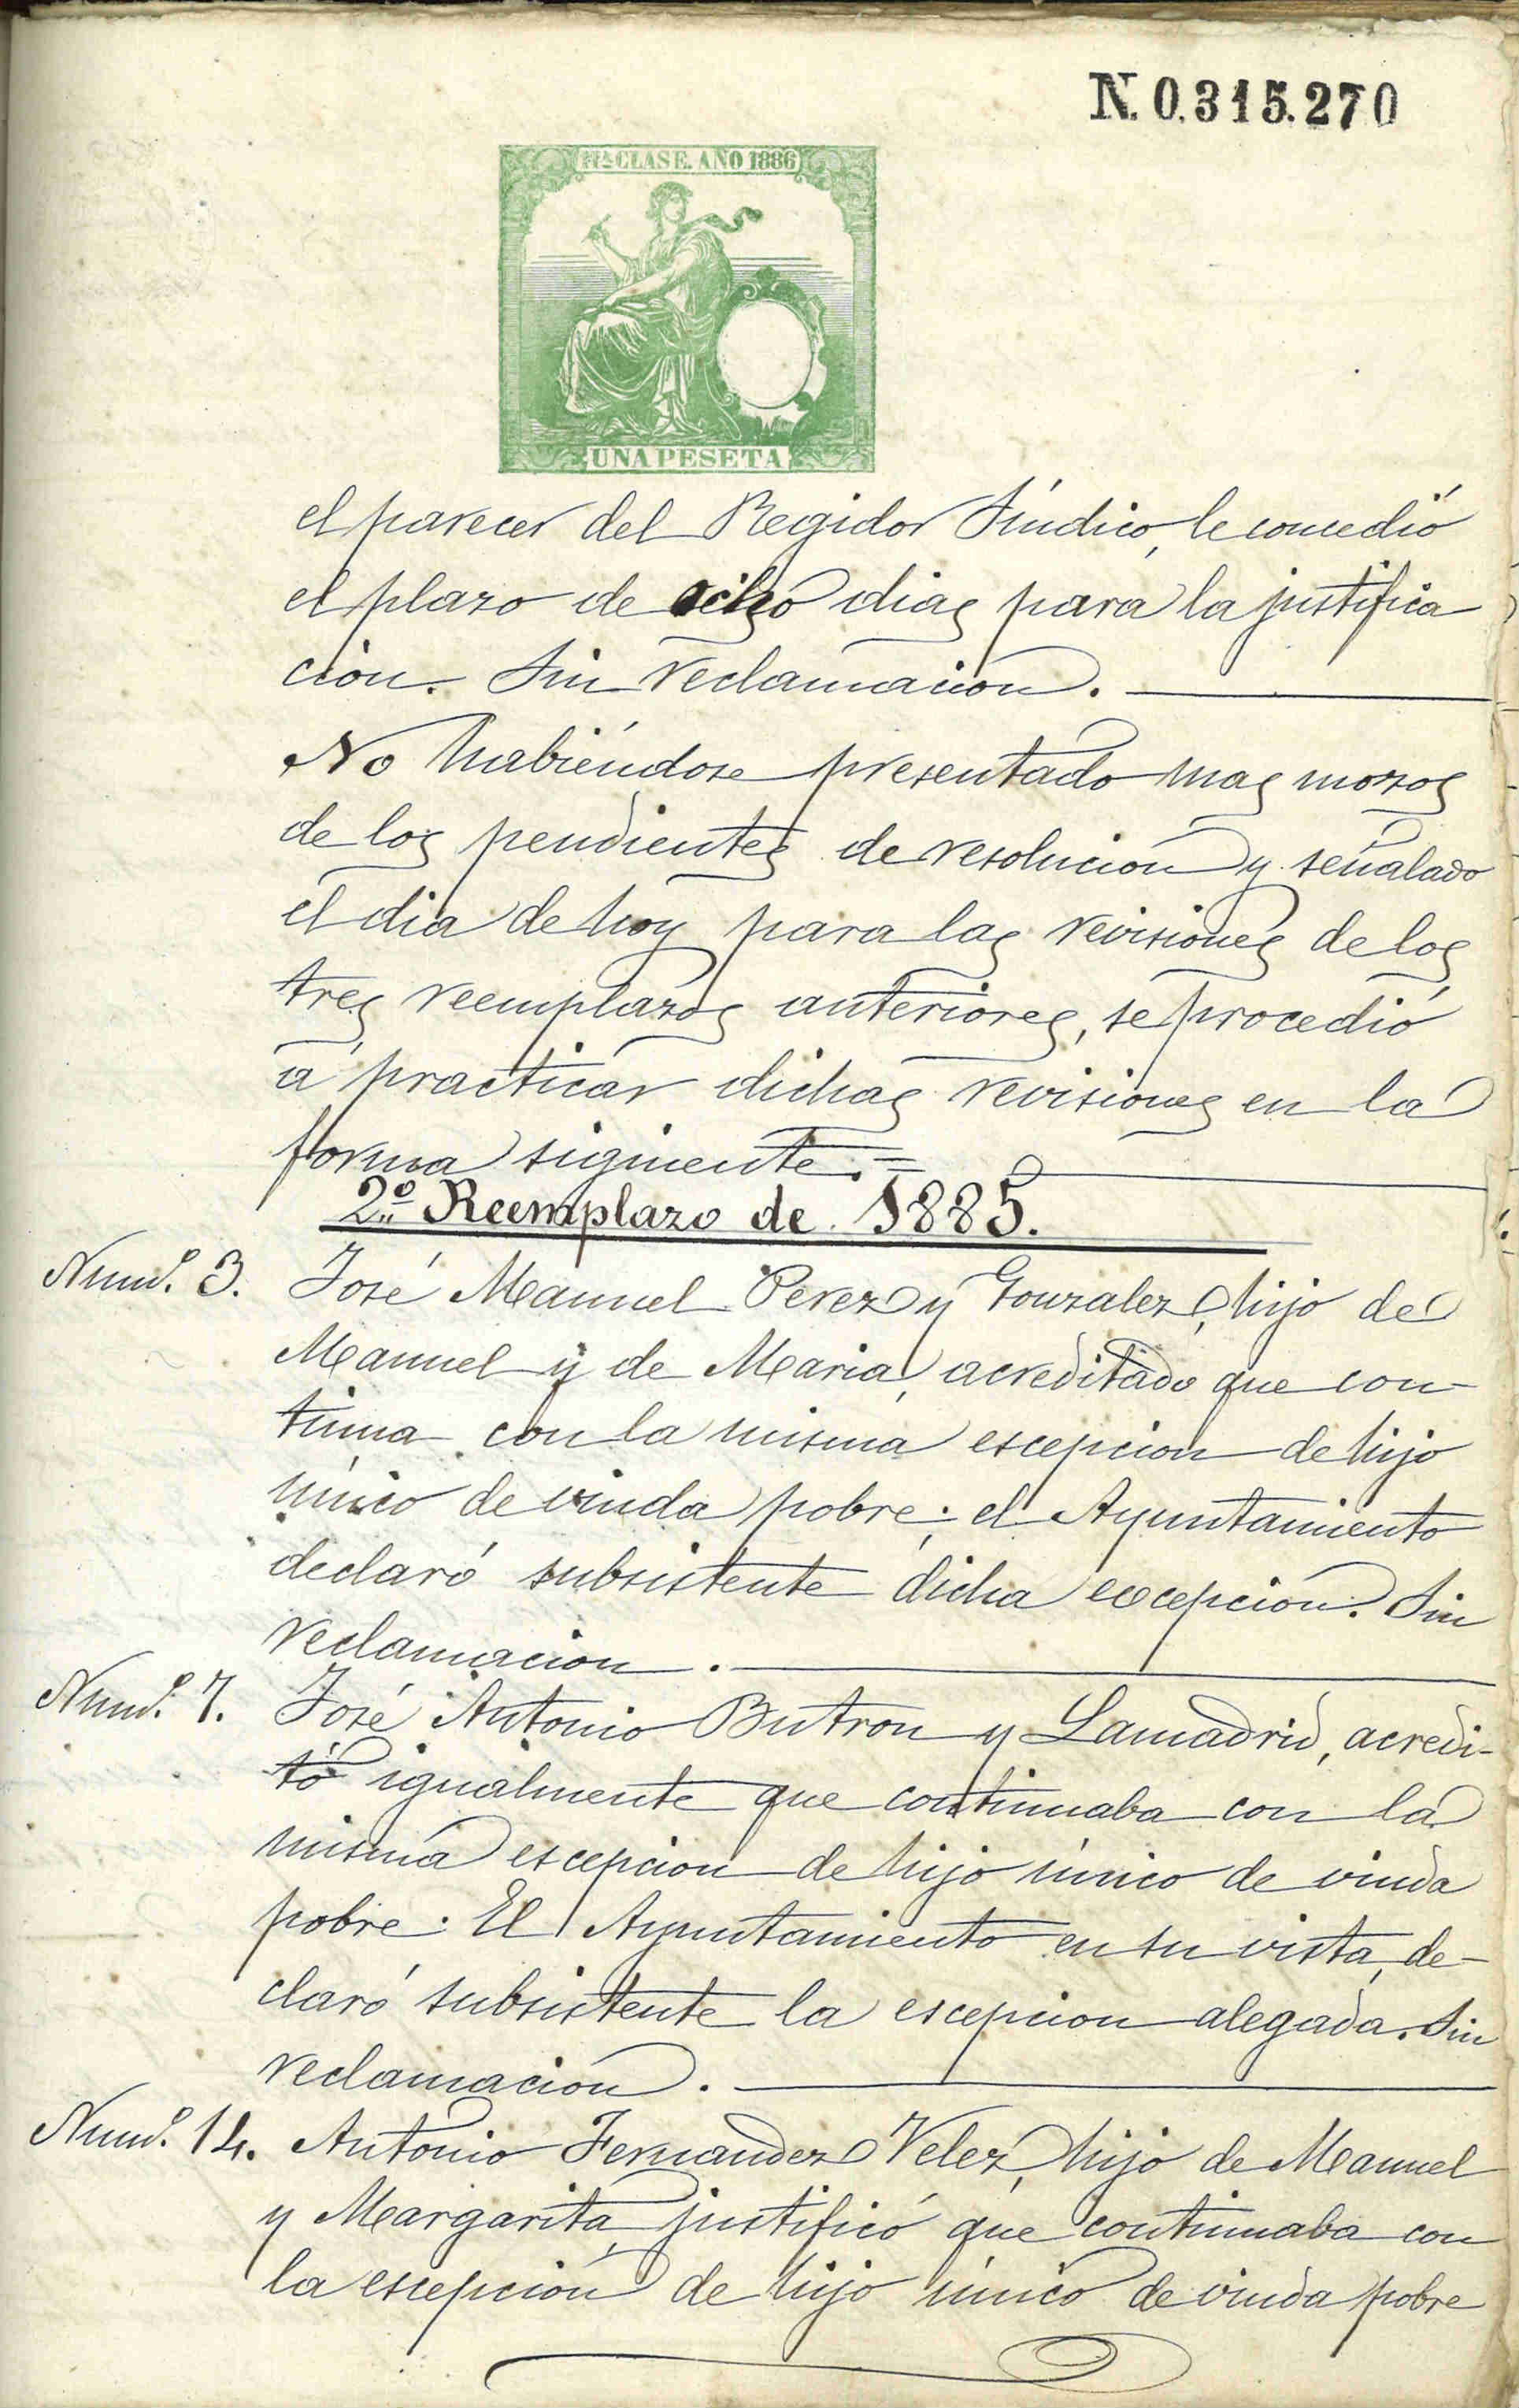 N. 0.315.270
11ª CLASE. AÑO 1886
UNA PESETA
el parecer del Regidor Síndico, le concedió
el plazo de ocho dias para la justifica
ción. Sin reclamacion.
No habiéndose presentado mas mozos
de los pendientes de resolucion y señalado
el dia de hoy para las revisiones de los
tres reemplazos anteriores, se procedió
á practicar dichas revisiones en la
forma siguiente. =
2º Reemplazo de 1885.
Numº. 3. José Manuel Perez y Gonzalez, hijo de
Manuel y de Maria, acreditado que con-
tinua con la misma escepcion de hijo
único de viuda pobre; el Ayuntamiento
declaró subsistente dicha excepcion. Sin
reclamacion.
Numº. 7. José Antonio Butron y Lamadrid, acredi-
tó igualmente que continuaba con la
misma escepcion de hijo único de viuda
pobre. El Ayuntamiento en su vista, de-
claró subsistente la escepcion alegada. Sin
reclamacion.
Numº. 14. Antonio Fernandez Velez, hijo de Manuel
y Margarita, justificó que continuaba con
la escepción de hijo único de viuda pobre